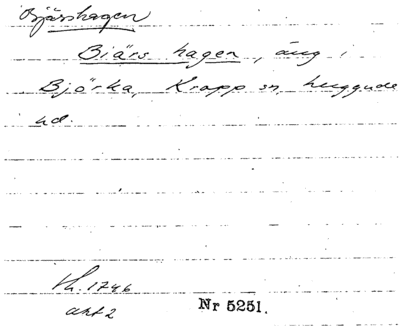 Bjärshagen
Biärs hagen, äng i
Björka, Krapp sn, huggude
hd.
Lh. 1746
akt 2
Nr 5251.